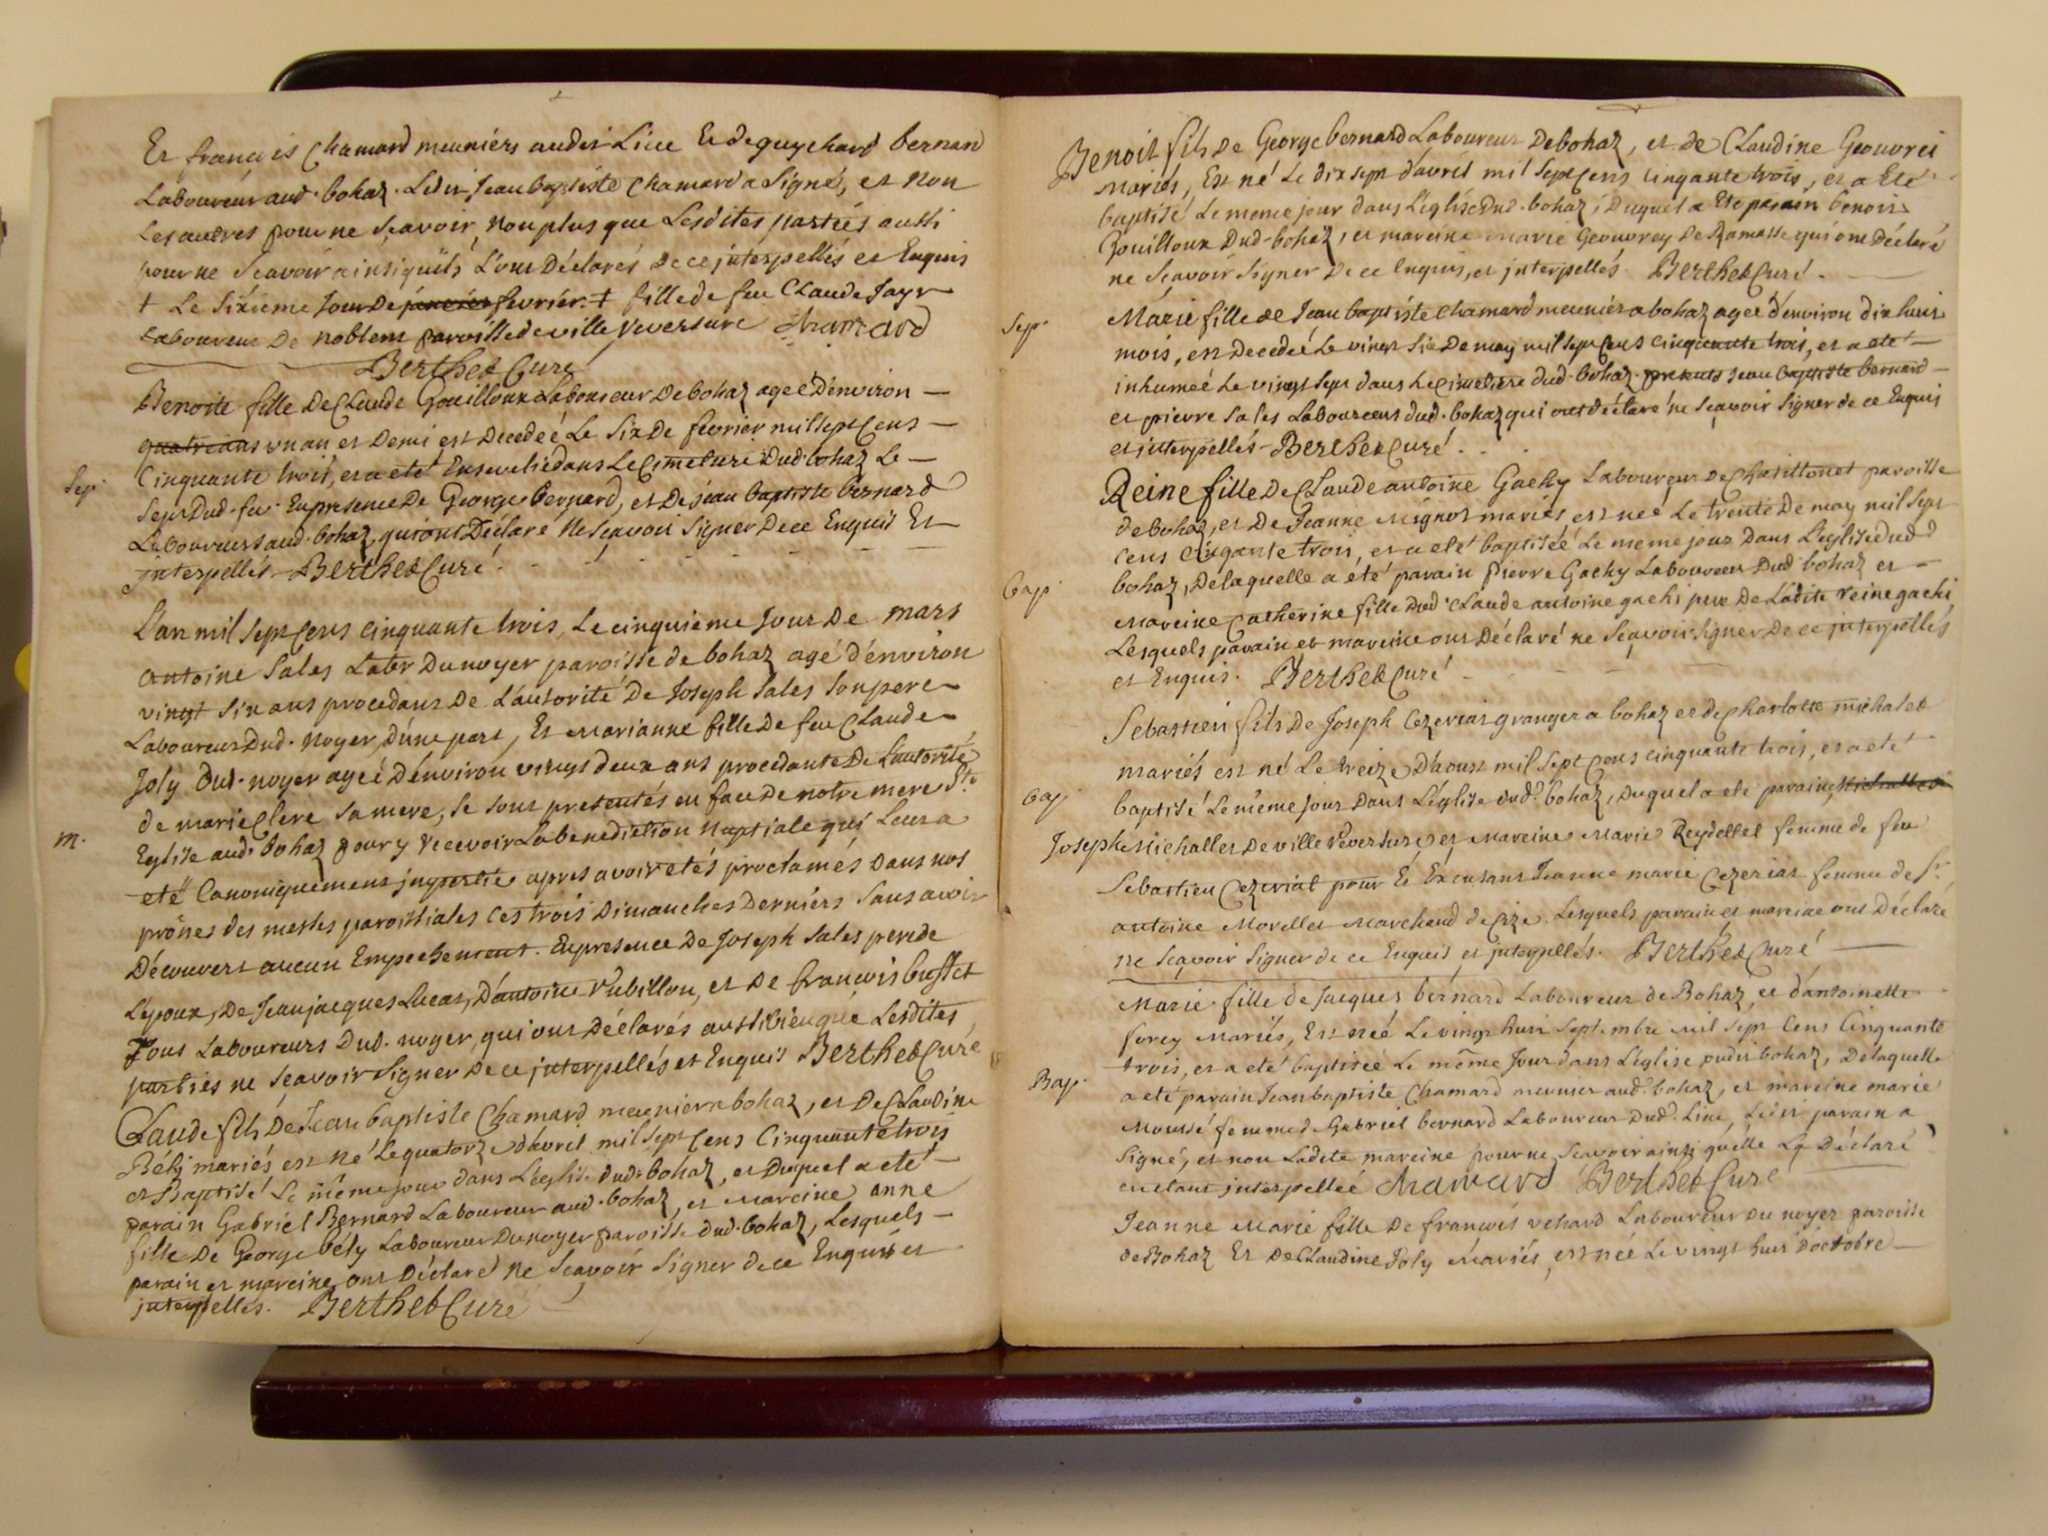 Et francois Chamard meuniers audit Lieu Et de guychard bernard
Laboureur aud. bohaz. Ledit Jean baptiste Chamard a Signé, et non
Les autres pour ne Scavoir, non plus que Lesdites parties aussi
pour ne Scavoir ainsi quils L'ont Déclarés de ce interpellés et Enquis
+ Le Sixieme Jour De janvier fevrier. + fille de feu Claude Jayr
Laboureur De noblens paroisse de ville reversure Chamard
Berthet Curé
Benoite fille De Claude Gouilloux Laboureur De bohaz agée D'environ
quatre ans un an et Demi est Decedeé Le Six De fevrier mil sept Cens
Sep. Cinquante trois, et a eté Ensevelie dans Le Cimetiere Dud. bohaz Le
Sept Dud. fev. En presence De George Bernard, et De Jean Baptiste bernard
Laboureurs aud. bohaz, qui ont Declaré Ne Scavoir Signer De ce Enquis Et
Interpellés Berthet Curé.
L'an mil sept Cens cinquante trois, Le cinquieme Jour De mars
Antoine Sales Labr Du noyer paroisse de bohaz agé d'environ
vingt Six ans procedant De L'autorité De Joseph Sales Son pere
Laboureur Dud. Noyer, D'une part, Et Marianne fille De feu Claude
Joly Dud. noyer ageé D'environ vingt deux ans procedante De L'autorité
de marie Clere Sa mere, Se Sont presentés en face De notre mere Ste
m. Eglise aud. bohaz pour y recevoir La benediction Nuptiale qui Leur a
eté Canoniquement impartie apres avoir etés proclamés Dans nos
prônes des messes paroissiales Ces trois Dimanches Derniérs Sans avoir
Découvert aucun Empechement. En presence De Joseph Sales pere de
L'époux, De Jean jacques Lucas, D'antoine Vubillon, et De francois buffet
Tous Laboureurs Dud. noyer, qui ont Déclarés aussi bien que Lesdites
parties ne Scavoir Signer De ce interpellés et Enquis Berthet Curé
Claude fils De Jean baptiste Chamard meunier a bohaz, et De Claudine
Bély mariés est né Le quatorze d'avril mil Sept Cens Cinquante trois
et Baptisé Le même jour dans L'église dud. bohaz, et Duquel a eté
parain Gabriel Bernard Laboureur aud. bohaz, et Mareine anne
fille De George bély Laboureur Du noyer paroisse dud. bohaz, Lesquels
parain et mareine ont Déclaré ne Scavoir Signer de ce Enquis et
interpellés. Berthet Curé
Benoit fils De George bernard Laboureur De bohaz, et de Claudine Geouvrei
Mariés, Est né Le dix sept d'avril mil Sept Cens Cinqante trois, et a Eté
baptisé Le meme jour dans L'église Dud. bohaz, Duquel a Eté parain benoit
Gouilloux Dud. bohaz, et mareine Marie Geouvrey De Ramasse qui ont Déclaré
ne Scavoir Signer De ce Enquis, et interpellés. Berthet Curé.
Sep. Marie fille de Jean baptiste chamard meunier a bohaz agée d'environ dix huit
mois, est Decedeé Le vingt Six De may mil sept Cens cinquante trois, et a eté
inhumeé Le vingt Sept dans Le Cimetiere dud. bohaz. presents Jean baptiste bernard
et pierre Sales Laboureurs dud. bohaz qui ont déclaré ne Scavoir Signer de ce Enquis
et interpellés Berthet Curé.
Reine fille De Claude antoine Gachy Laboureur De Chatillonet paroisse
de bohaz, et De Jeanne Mignot mariés est neé Le trente De may mil Sept
Cens Cinqante trois, et a eté baptiseé Le meme jour Dans L'eglise dud
Bap. bohaz, De laquelle a été parain Pierre Gachy Laboureur Dud bohaz et
Mareine Catherine fille Dud. Claude antoine gachi pere De Ladite reine gachi
Lesquels parain et mareine ont Déclaré ne Scavoir Signer De ce interpellés
et Enquis. Berthet Curé
Sebastien fils De Joseph Cezeriat granger a bohaz et de Charlotte michalet
mariés est né Le treize D'aoust mil Sept Cens cinquante trois, et a eté
Bap. baptisé Le même jour Dans L'église dud. bohaz, Duquel a eté parain
Joseph Michallet De ville reversure et Mareine Marie Reydellet femme de feu
Sebastien Cezeriat pour Et Excusant Jeanne marie Cezeriat femme de Sr.
antoine Morellet Marchand de Cize. Lesquels parain et mareine ont Déclaré
ne Scavoir Signer de ce Enquis et interpellés. Berthet Curé
Marie fille de Jacques bernard Laboureur de Bohaz, et d'antoinette
forey Mariés, Est neé Le vingt huit Septembre Mil Sept Cens Cinquante
trois, et a eté baptiseé Le même Jour dans L'eglise dudit bohaz, De laquelle
Bap. a eté parain Jean baptiste Chamard meunier aud. bohaz, et mareine marie
Moussé femme de Gabriel bernard Laboureur Dud. Lieu, Ledit parain a
Signé, et non Ladite mareine pour ne Scavoir ainsi quelle La Déclaré
en etant interpelleé Chamard Berthet Curé
Jeanne Marie fille De francois vehard Laboureur Du noyer paroisse
de Bohaz Et De Claudine Joly Mariés, est née Le vingt huit d'octobre